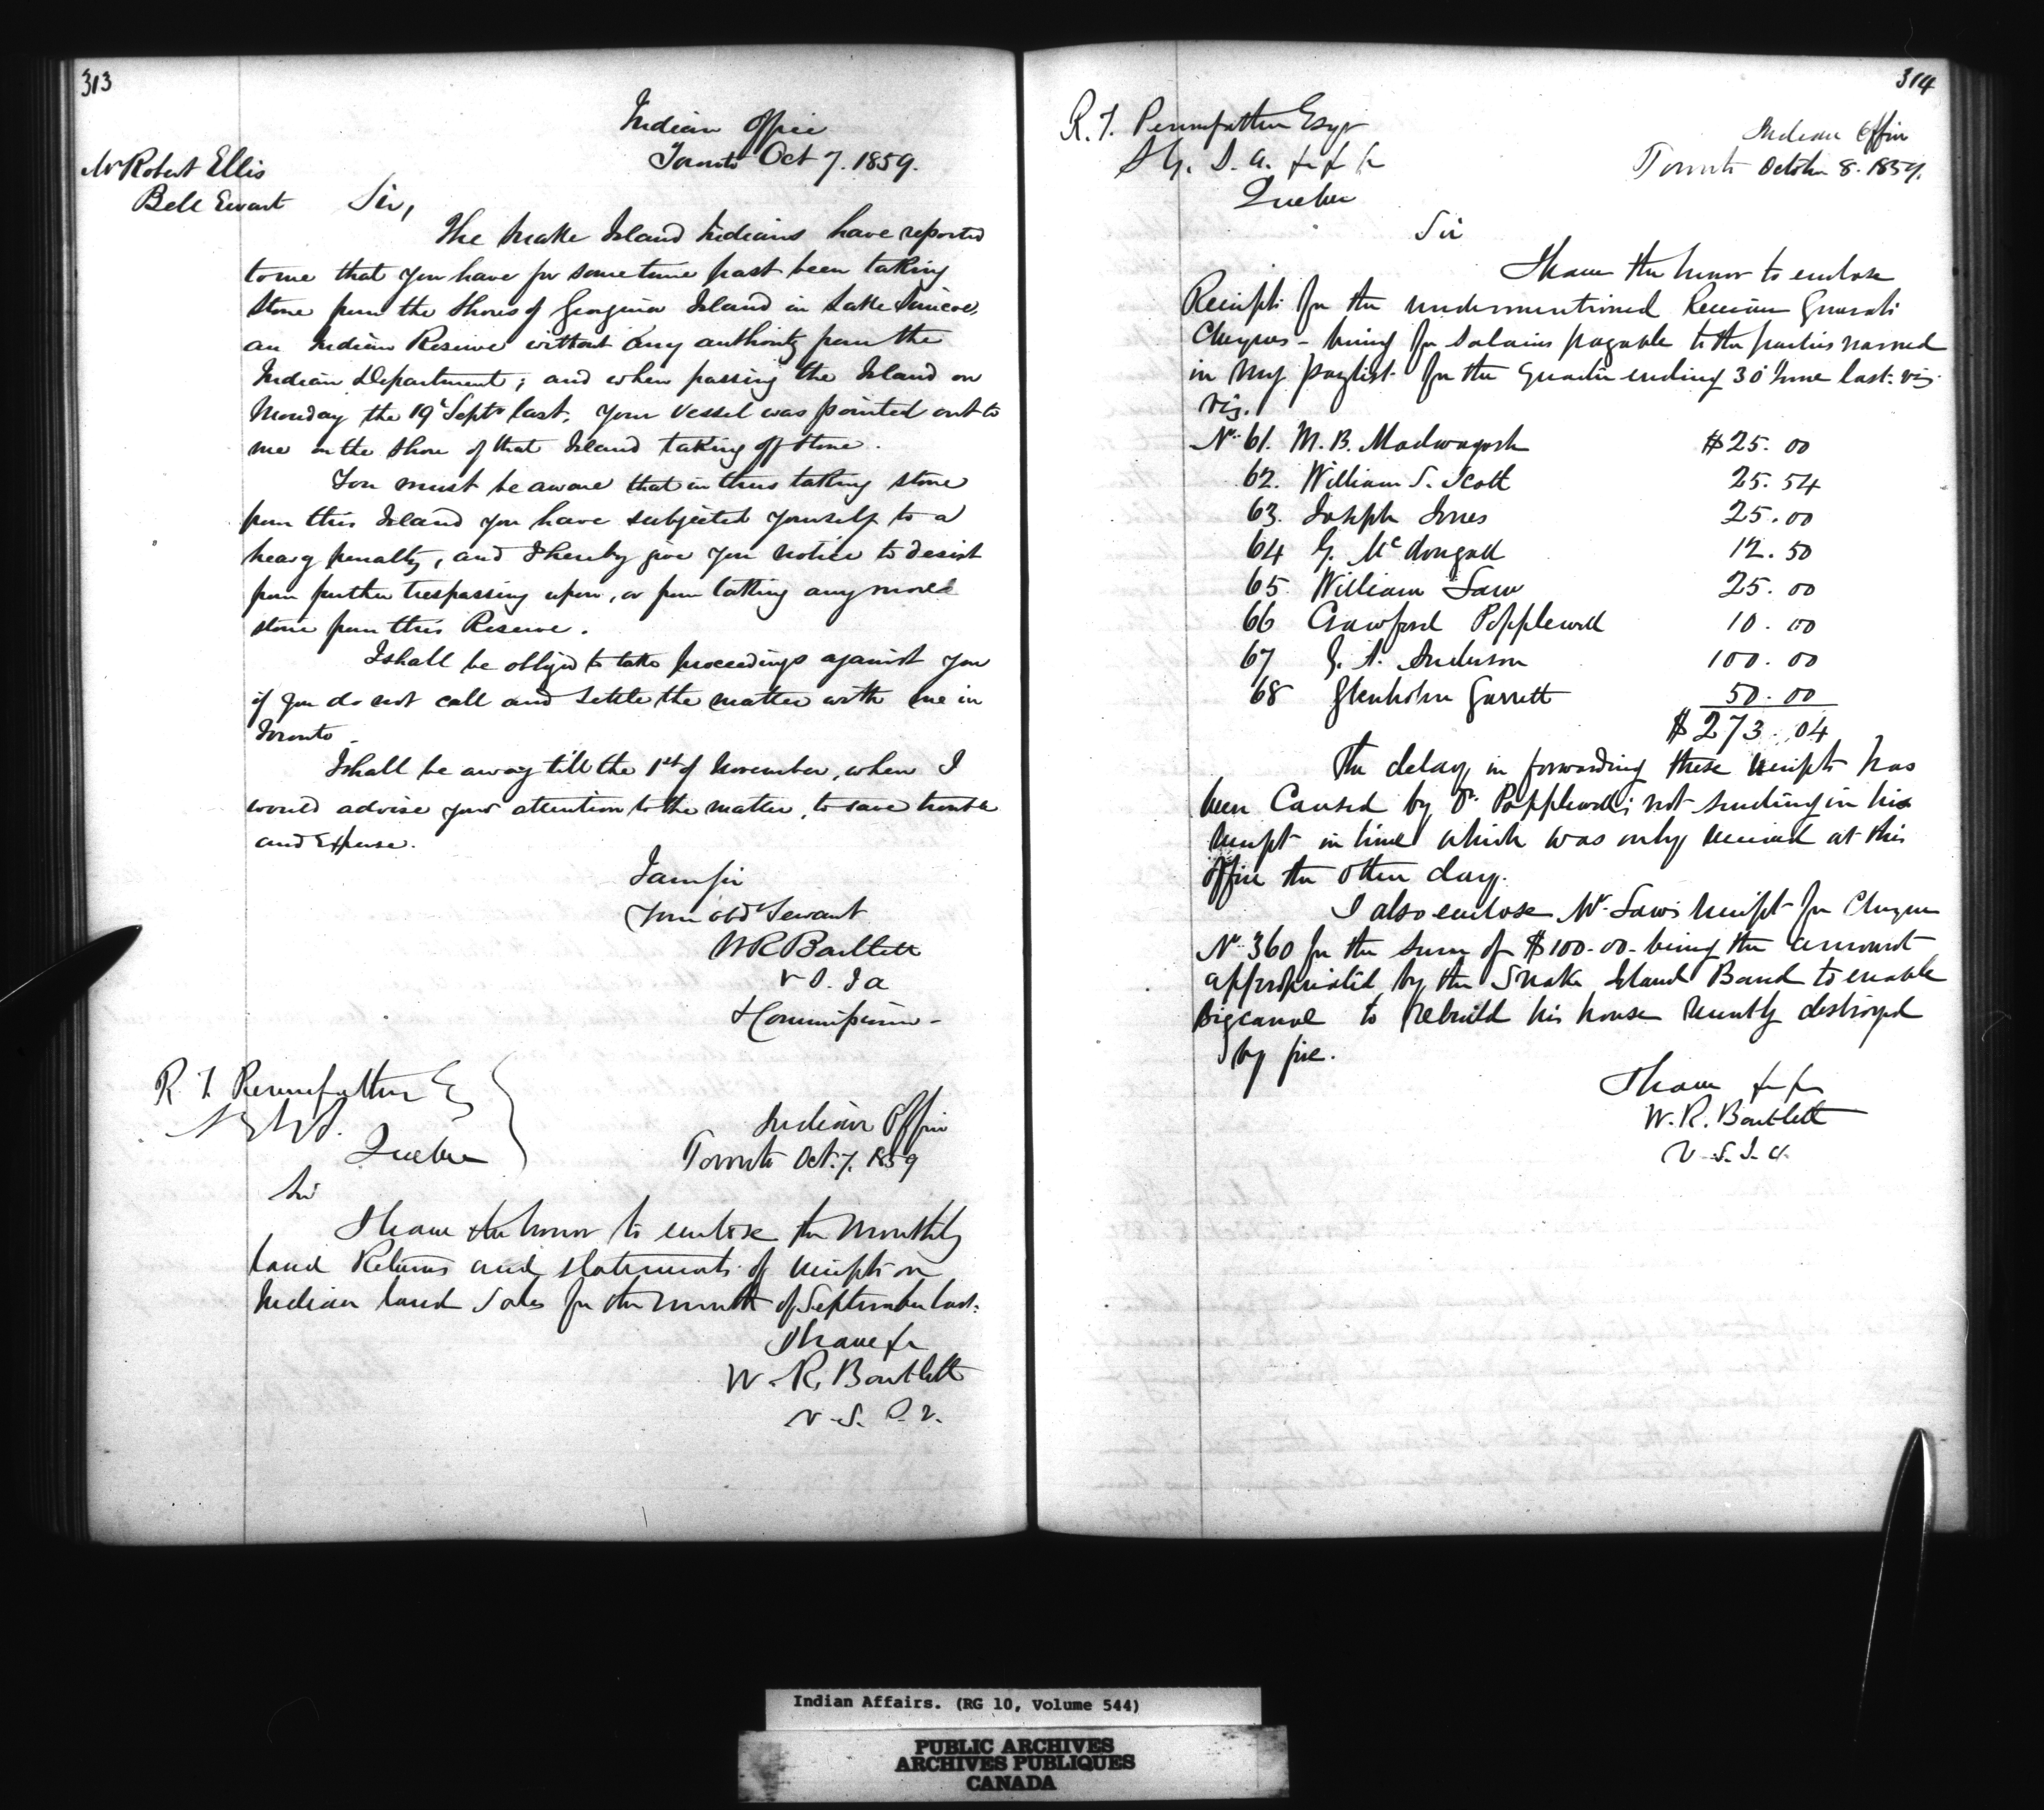 313
Indian Office
Toronto Oct 7. 1859.
Mr Robert Ellis
Bell Ewart
Sir,
The Snake Island Indians have reported
to me that you have for some time past been taking
stone from the Shores of Georgina Island in Lake Simcoe,
an Indian Reserve without any authority from the
Indian Department; and when passing the Island on
Monday the 19th Septr last. Your vessel was pointed out to
me on the Shore of that Island taking off stone.
You must be aware that in thus taking stone
from this Island you have subjected yourself to a
heavy penalty, and I hereby give you notice to desist
from further trespassing upon, or from taking any more
stone from this Reserve.
I shall be obliged to take proceedings against you
if you do not call and settle the matter with me in
Toronto.
I shall be away till the 1st of November, when I
would advise your attention to the matter, to save trouble
and Expense.
I am Sir
Your obdt Servant
W R Bartlett
V S. I a
& Commissioner -
R T. Pennefather Esq
Quebec
Indian Office
Toronto Oct. 7. 1859
Sir
I have the honor to enclose the Monthly
Land Returns and statements of receipts on
Indian Land Sales for the month of September last.
I have &c
W. R. Bartlett
V. S. I. A.
314
R. T. Pennefather Esqr
S G. I. A. &c &c &c
Quebec
Indian Office
Toronto October 8. 1859.
Sir
I have the honor to enclose
Receipts for the undermentioned Receiver Generals
Cheques - being for Salaries payable to the parties named
in my paylist for the Quarter ending 30 June last. viz.
viz.
No. 61. M. B. Madwayosh $25.00
62. William S. Scott 25.54
63. Joseph Jones 25.00
64 G. McDougall 12.50
65. William Law 25.00
66 Crawford Popplewell 10.00
67 G. A. Anderson 100.00
68 Glenholm Garrett 50.00
$273.04
The delay in forwarding these receipts has
been Caused by Dr. Popplewell's not sending in his
receipt in time which was only received at this
Office the other day.
I also enclose Mr. Law's receipt for Cheque
No 360 for the sum of $100.00 - being the amount
appropriated by the Snake Island Band to enable
Bigcanoe to rebuild his house recently destroyed
by fire.
I have &c &c
W. R. Bartlett
V. S. I. A.
Indian Affairs. (RG 10, Volume 544)
PUBLIC ARCHIVES
ARCHIVES PUBLIQUES
CANADA